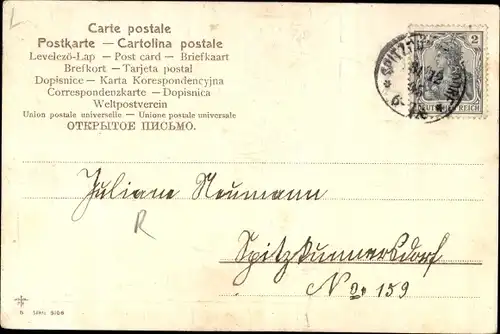 Carte postale
Postkarte — Cartolina postale
Levelező-Lap — Post card — Briefkaart
Brefkort — Tarjeta postal
Dopisnice — Karta Korespondencyjna
Correspondenzkarte — Dopisnica
Weltpostverein
Union postale universelle — Unione postale universale
ОТКРЫТОЕ ПИСЬМО.
2
REICH
Juliane Neumann
R
Spitzkunnersdorf
No 159